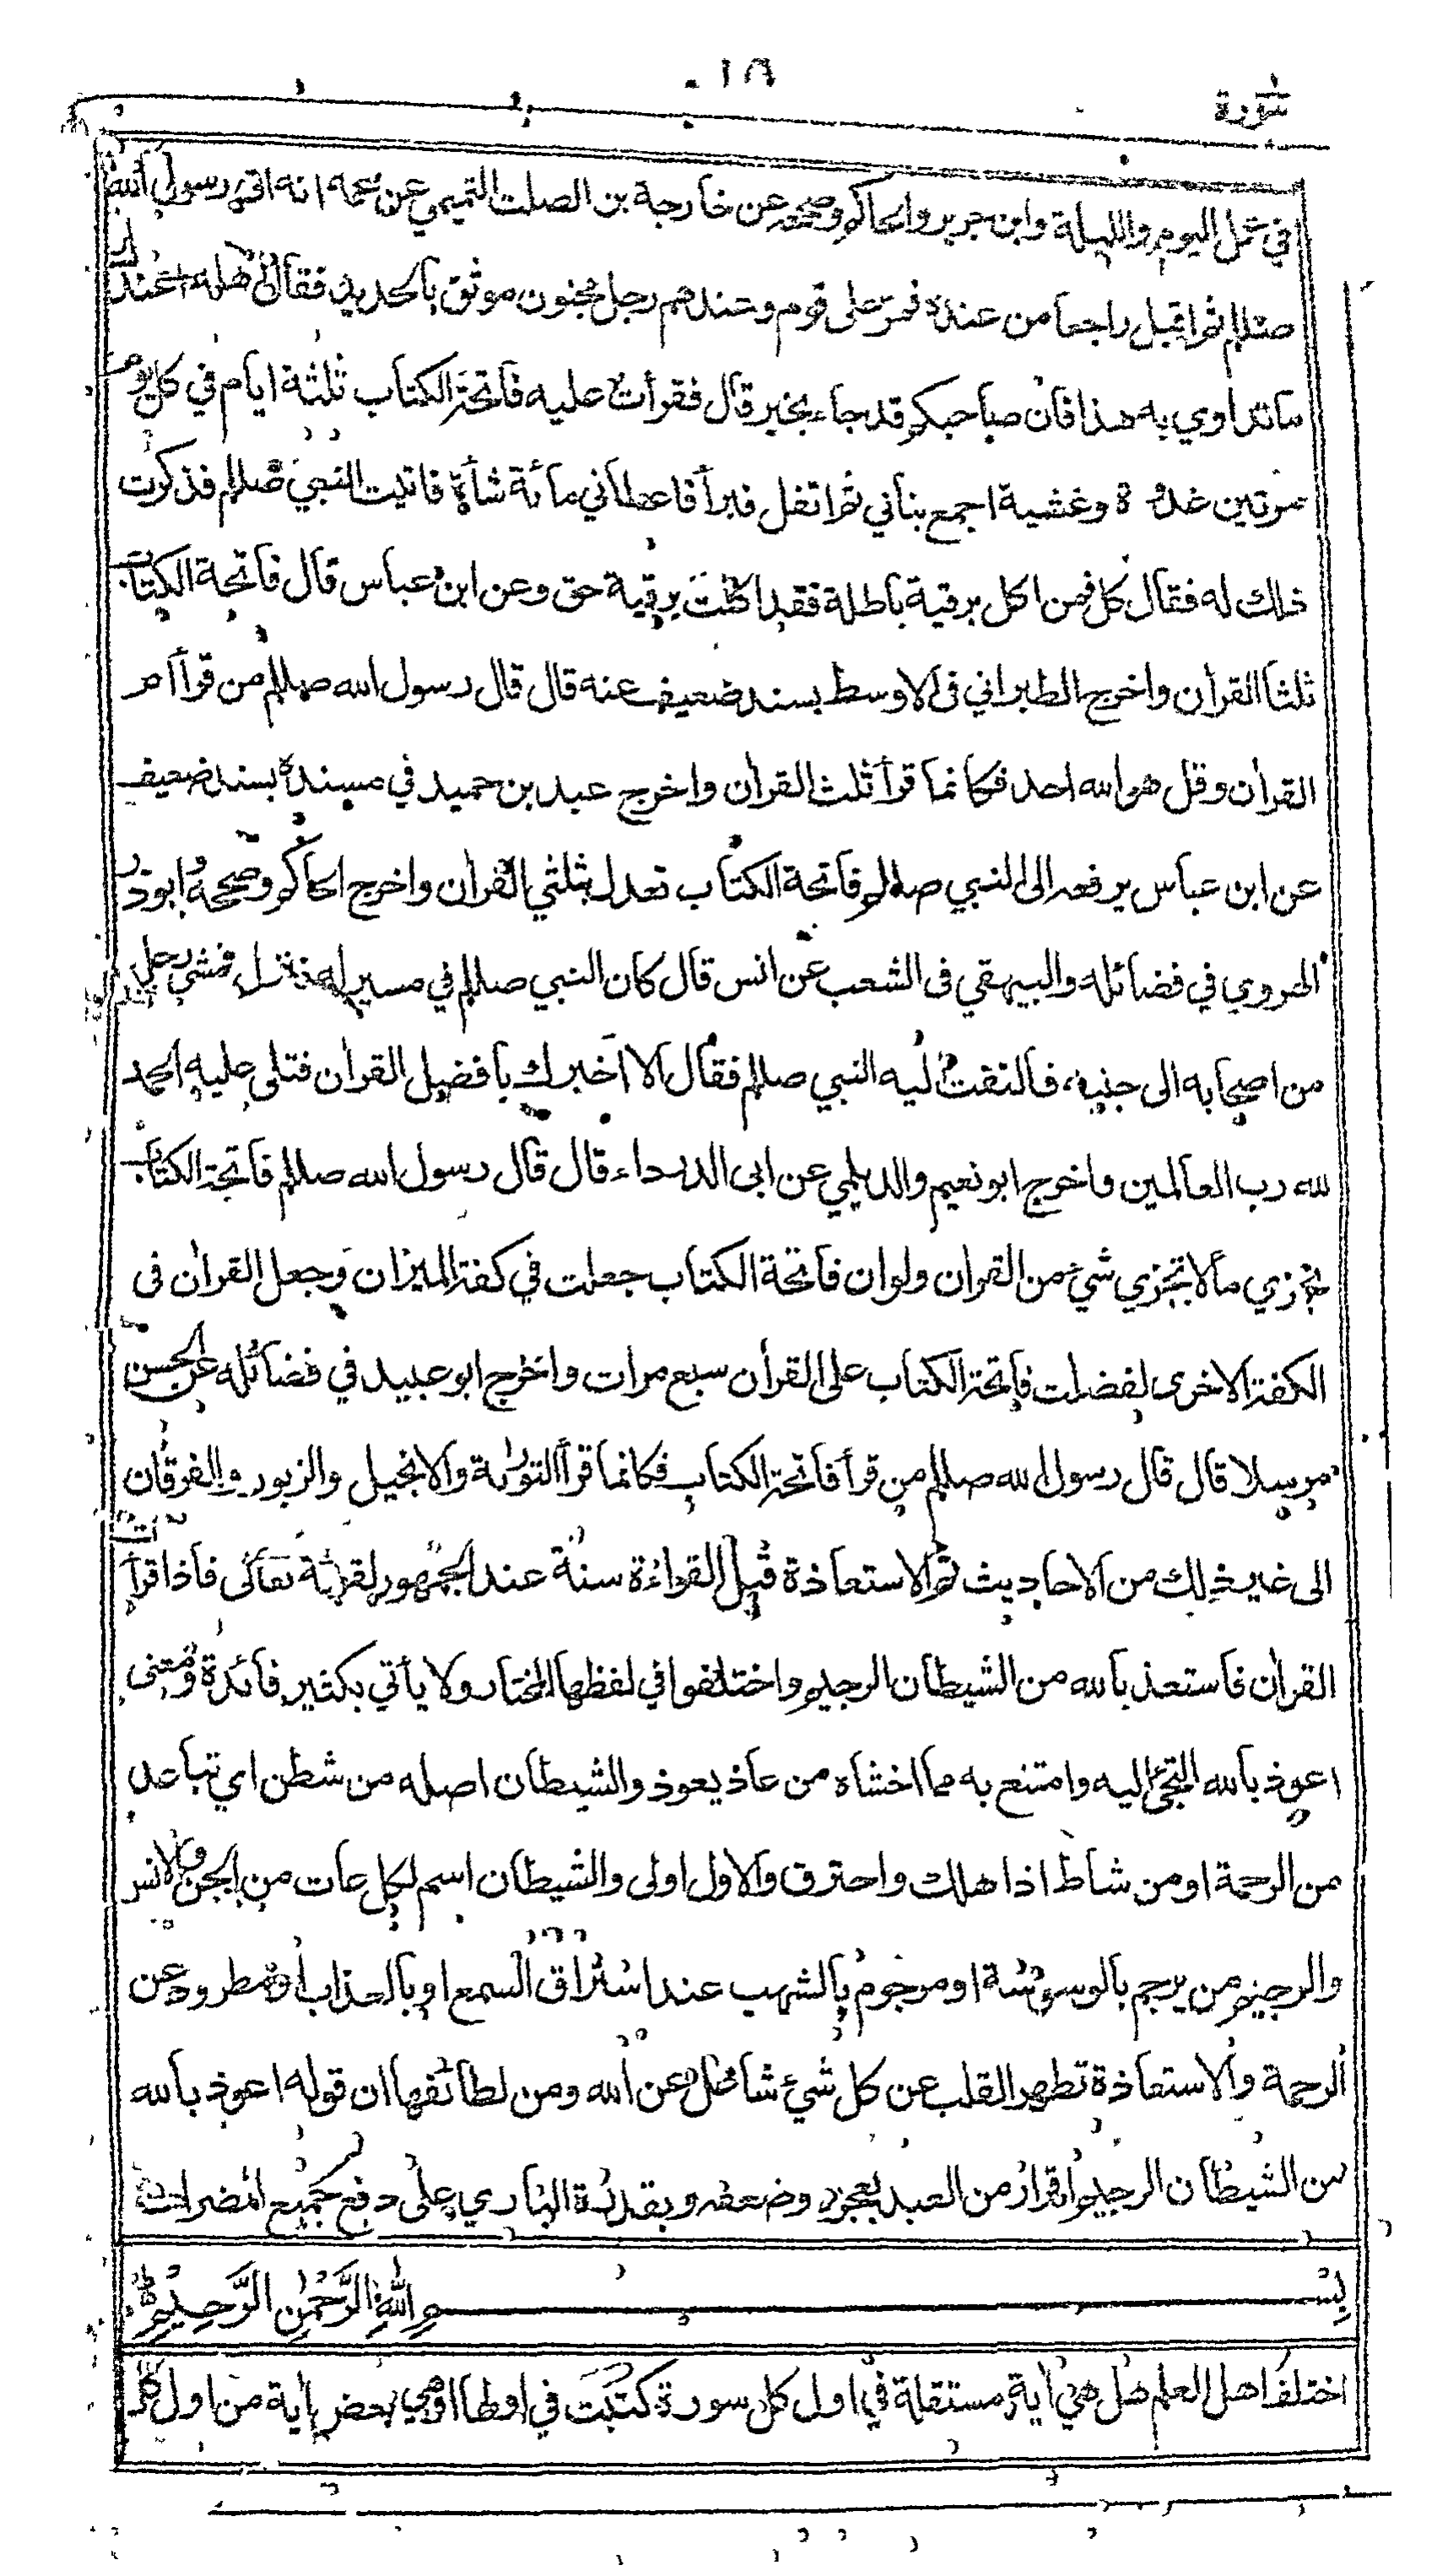 ١٨
سورة
في عمل اليوم والليلة وابن جرير والحاكم وصححه عن خارجة بن الصلت التميمي عن عمه انه اتى رسول الله
صللم ثم اقبل راجعا من عنده فمر على قوم وعندهم رجل مجنون موثق بالحديد فقال اهله اعندك
ما تداوي به هذا فان صاحبكم قد جاء بخير قال فقرأت عليه فاتحة الكتاب ثلثة ايام في كل يوم
مرتين غدوة وعشية اجمع بزاقي ثم اتفل فبرأ فاعطاني مائة شاة فاتيت النبي صللم فذكرت
ذلك له فقال كل فمن اكل برقية باطلة فقد اكلت برقية حق وعن ابن عباس قال فاتحة الكتاب
ثلثا القرأن واخرج الطبراني فى الاوسط بسند ضعيف عنه قال قال رسول الله صللم من قرأ ام
القرأن وقل هو الله احد فكانما قرأ ثلث القرأن واخرج عبد بن حميد في مسنده بسند ضعيف
عن ابن عباس يرفعه الى النبي صللم فاتحة الكتاب تعدل بثلثي القرأن واخرج الحاكم وصححه وابوذر
الهروي في فضائله والبيهقي فى الشعب عن انس قال كان النبي صللم في مسير له فنزل فمشى رجل
من اصحابه الى جنبه فالتفت اليه النبي صللم فقال الا اخبرك بافضل القرأن فتلى عليه الحمد
لله رب العالمين واخرج ابو نعيم والديلمي عن ابى الدرداء قال قال رسول الله صللم فاتحة الكتاب
تجزي مالا تجزي شيء من القرأن ولوان فاتحة الكتاب جعلت في كفة الميزان وجعل القرأن فى
الكفة الاخرى لفضلت فاتحة الكتاب على القرأن سبع مرات واخرج ابو عبيد في فضائله عن الحسن
مرسلا قال قال رسول الله صللم من قرأ فاتحة الكتاب فكانما قرأ التورىة والانجيل والزبور والفرقان
الى غير ذلك من الاحاديث ثم الاستعاذة قبل القراءة سنة عند الجمهور لقوله تعالى فاذا قرأت
القرأن فاستعذ بالله من الشيطان الرجيم واختلفوا في لفظها المختار ولا يأتي بكثير فائدة ومعنى
اعوذ بالله التجئ اليه وامتنع به مما اخشاه من عاذ يعوذ والشيطان اصله من شطن اي تباعد
من الرحمة او من شاط اذا هلك واحترق والاول اولى والشيطان اسم لكل عات من الجن والانس
والرجيم من يرجم بالوسوسة او مرجوم بالشهب عند استراق السمع او بالعذاب او مطرود عن
الرحمة والاستعاذة تطهر القلب عن كل شيء شاغل عن الله ومن لطائفها ان قوله اعوذ بالله
من الشيطان الرجيم اقرار من العبد بعجزه وضعفه وبقدرة الباري على دفع جميع المضرات
بِسْمِ اللّٰهِ الرَّحْمٰنِ الرَّحِيْمِ
اختلف اهل العلم هل هي أية مستقلة في اول كل سورة كتبت في اولها او هي بعض أية من اول كل